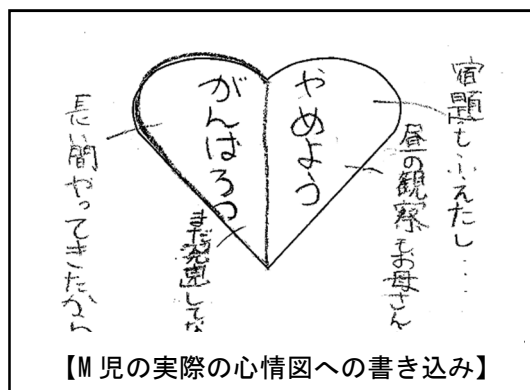 宿題もふえたし・・・
昼の観察もお母さん
やめよう
がんばろう
まだ発見してな
長い間やってきたから
【M児の実際の心情図への書き込み】